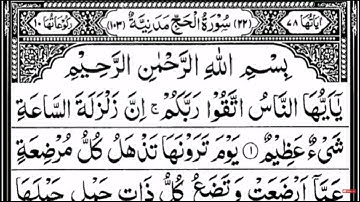 اٰيَاتُهَا ٧٨ (٢٢) سُوْرَةُ الْحَجِّ مَدَنِيَّةٌ (١٠٣) رُكُوْعَاتُهَا ١٠
بِسْمِ اللّٰهِ الرَّحْمٰنِ الرَّحِيْمِ
يٰۤاَيُّهَا النَّاسُ اتَّقُوْا رَبَّكُمْ ۚ اِنَّ زَلْزَلَةَ السَّاعَةِ
شَيْءٌ عَظِيْمٌ ۝١ يَوْمَ تَرَوْنَهَا تَذْهَلُ كُلُّ مُرْضِعَةٍ
عَمَّاۤ اَرْضَعَتْ وَتَضَعُ كُلُّ ذَاتِ حَمْلٍ حَمْلَهَا